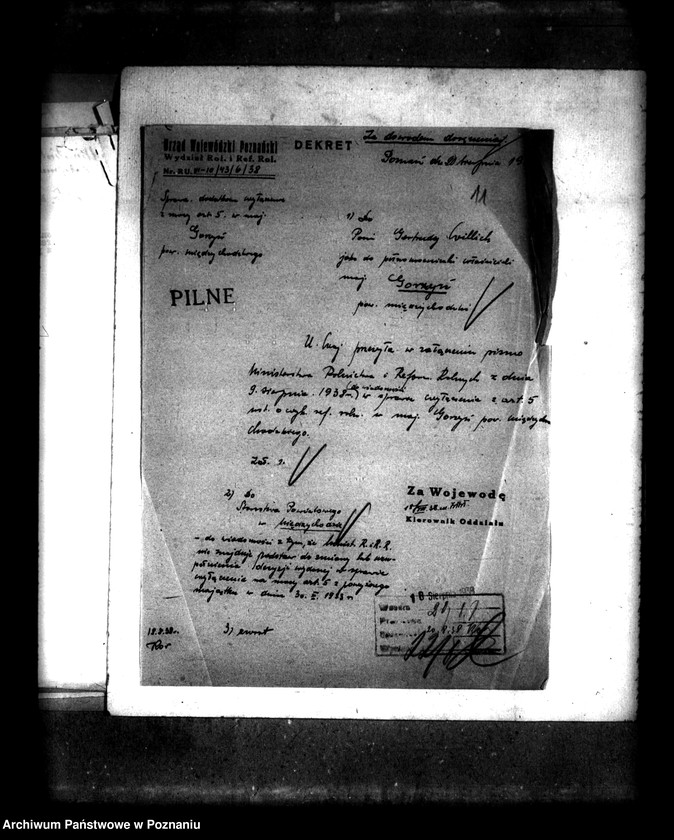 Za dowodem doręczenia
Urząd Wojewódzki Poznański
DEKRET
Wydział Rol. i Ref. Rol.
Poznań dn. sierpnia 19
Nr. RU. VI-10/43/6/38
11
Sprawa dodatkow. wyłączenia
z mocy art. 5. w maj.
Gorzyń
pow. międzychodzkiego
PILNE
1) Do
Pani Gertrudy Willich
jako do pełnomocniczki właścicieli
maj. Gorzyń
pow. międzychodzki
U. Woj. przesyła w załączeniu pismo
Ministerstwa Rolnictwa i Reform Rolnych z dnia
9. sierpnia 1938 r. (do wiadomości) w sprawie wyłączenia z art. 5
ust. o wyk. ref. roln. w maj. Gorzyń pow. między-
chodzkiego.
Zał. 1.
2) Do
Starostwa Powiatowego
w Międzychodzie
Za Wojewodę
Kierownik Oddziału
- do wiadomości z tym, że Minist. R. i R. R.
nie znajduje podstaw do zmiany lub uzu-
pełnienia decyzji wydanej w sprawie
wyłączenia na mocy art. 5 z powyższego
majątku w dniu 30. 1938 r.
18 Sierpnia 1938
18.8.38 r.
3) zwrot
Archiwum Państwowe w Poznaniu